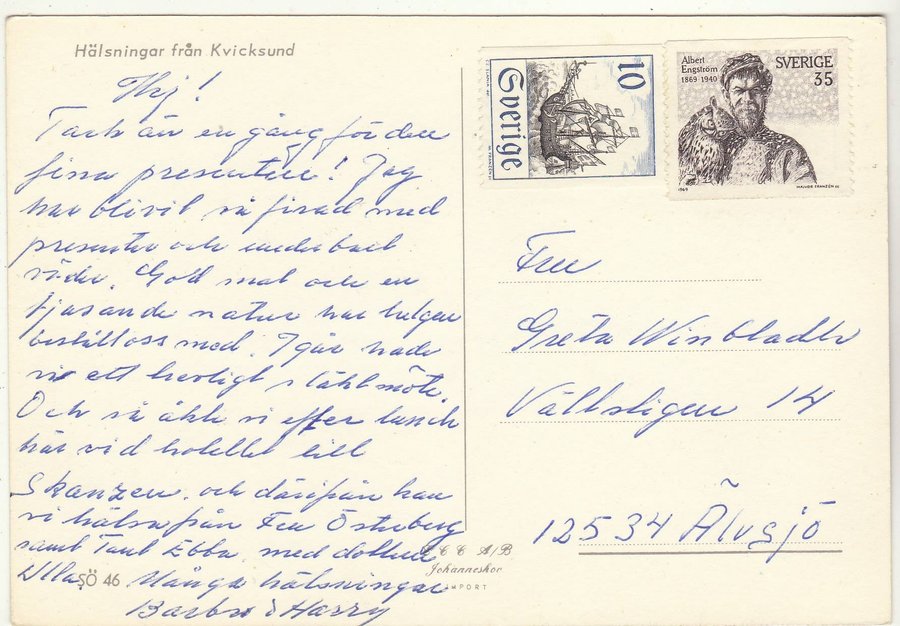 Hälsningar från Kvicksund
Hej!
Tack än en gång för den
fina presenten! Jag
har blivit så firad med
presenter och underbart
väder. God mat och en
tjusande natur har helgen
bestått oss med. Igår hade
vi ett herligt släktmöte.
Och så åkte vi efter lunch
här vid hotellet till
Skanzen. och därifrån kan
vi hälsa från Fru Österberg
samt Tant Ebba med dottern
Ulla. Många hälsningar
Barbro & Harry
SÖ 46
A/B
Johanneshov
IMPORT
10
Sverige
Albert
Engström
1869-1940
SVERIGE
35
1969
MAJVOR FRANZÉN SC
Fru
Greta Winbladh
Vällstigen 14
12534 Älvsjö